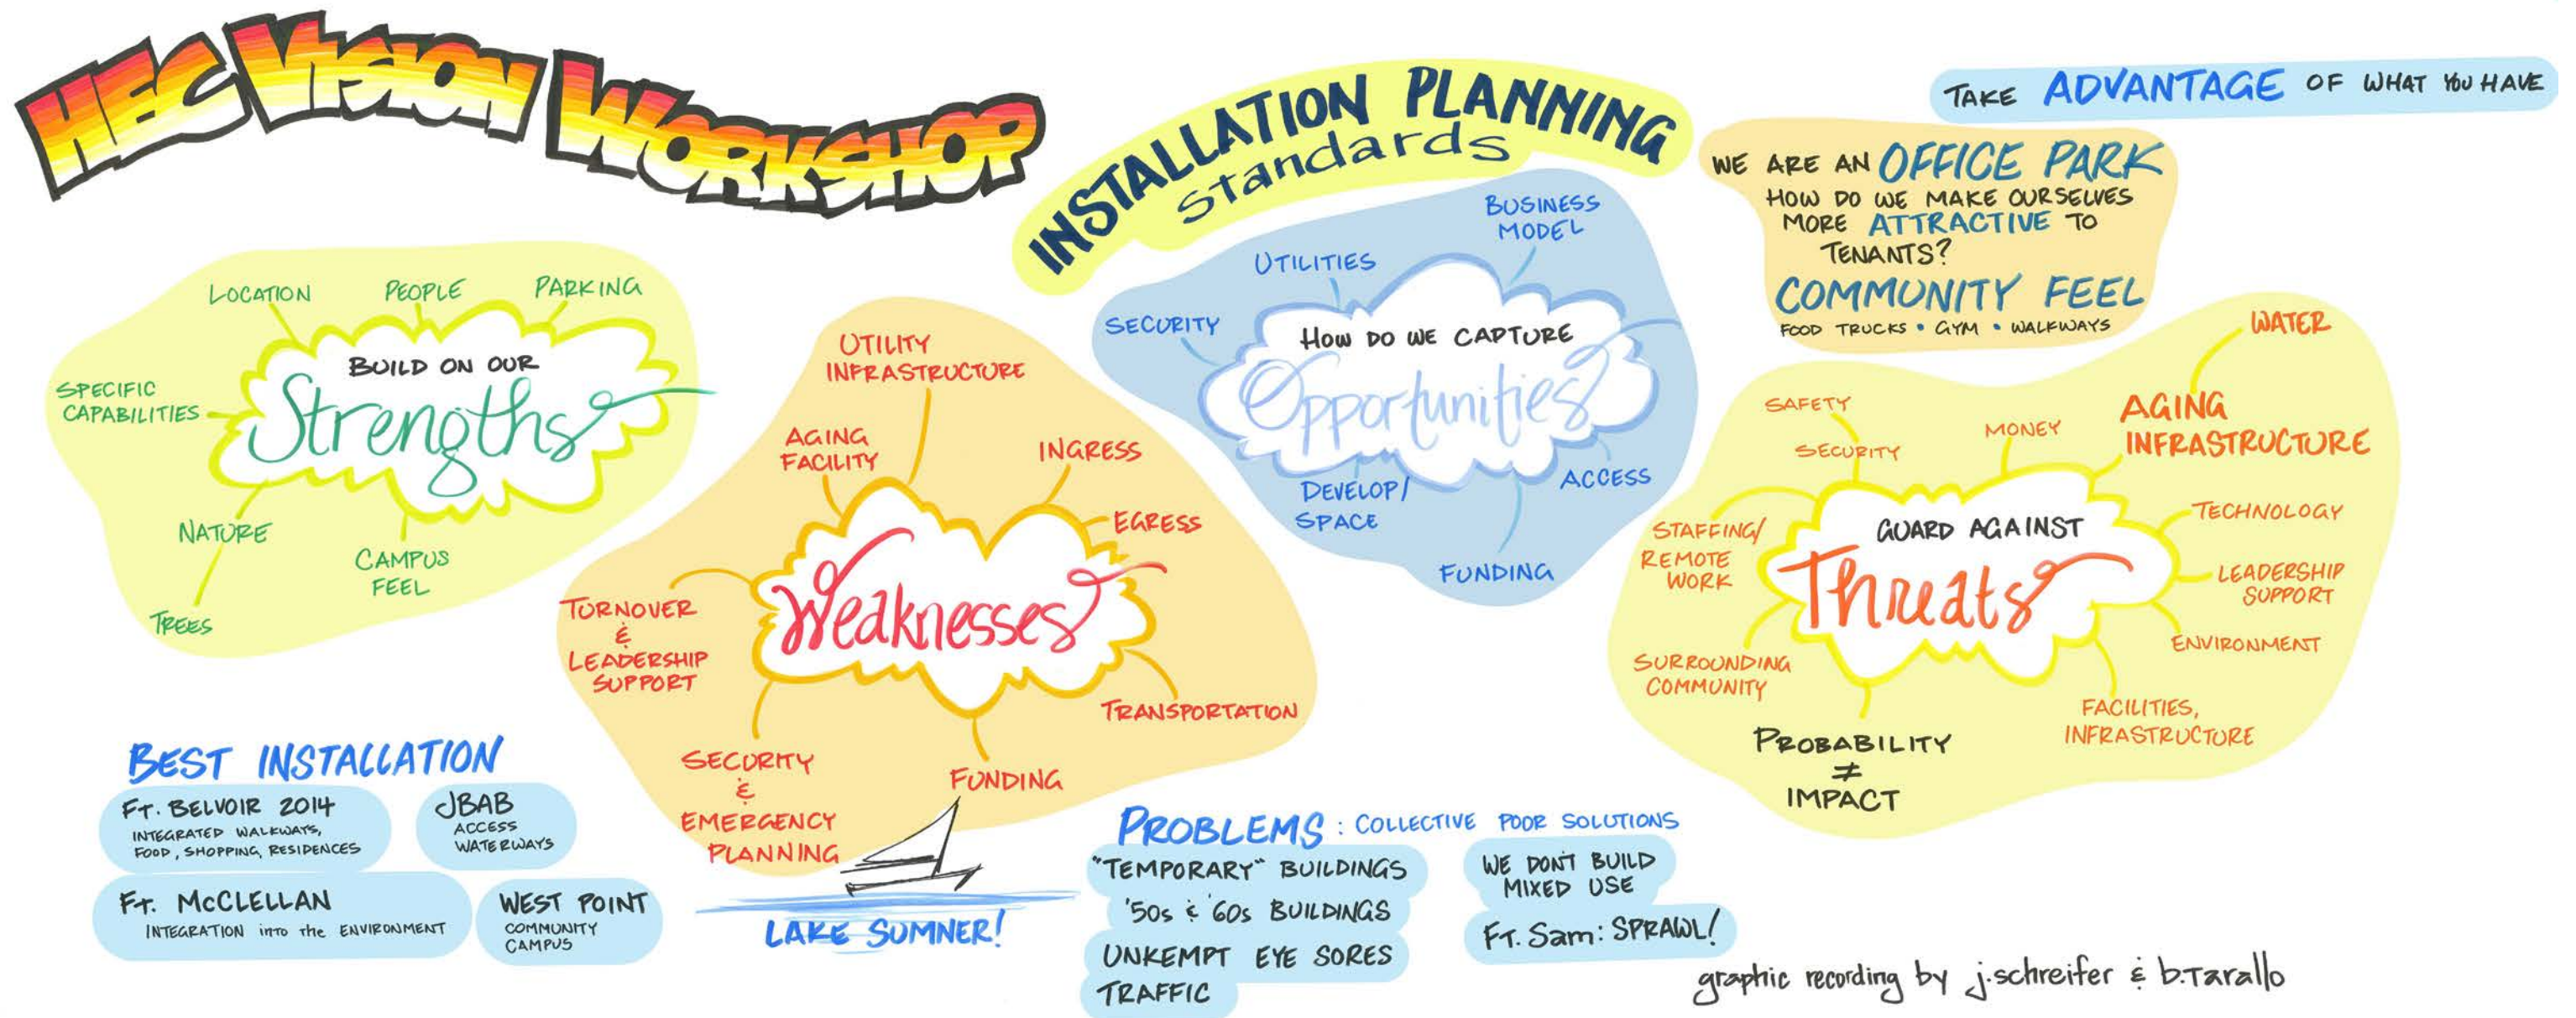 HEC VISION WORKSHOP
INSTALLATION PLANNING
standards
TAKE ADVANTAGE OF WHAT YOU HAVE
WE ARE AN OFFICE PARK
HOW DO WE MAKE OURSELVES
MORE ATTRACTIVE TO
TENANTS?
COMMUNITY FEEL
FOOD TRUCKS • GYM • WALKWAYS
BUILD ON OUR
Strengths
LOCATION
PEOPLE
PARKING
SPECIFIC
CAPABILITIES
NATURE
TREES
CAMPUS
FEEL
Weaknesses
UTILITY
INFRASTRUCTURE
AGING
FACILITY
INGRESS
EGRESS
TURNOVER
&
LEADERSHIP
SUPPORT
SECURITY
&
EMERGENCY
PLANNING
FUNDING
TRANSPORTATION
HOW DO WE CAPTURE
Opportunities
SECURITY
UTILITIES
BUSINESS
MODEL
DEVELOP/
SPACE
ACCESS
FUNDING
GUARD AGAINST
Threats
SAFETY
SECURITY
MONEY
WATER
AGING
INFRASTRUCTURE
TECHNOLOGY
LEADERSHIP
SUPPORT
ENVIRONMENT
FACILITIES,
INFRASTRUCTURE
STAFFING/
REMOTE
WORK
SURROUNDING
COMMUNITY
PROBABILITY
≠
IMPACT
BEST INSTALLATION
FT. BELVOIR 2014
INTEGRATED WALKWAYS,
FOOD, SHOPPING, RESIDENCES
JBAB
ACCESS
WATERWAYS
FT. McCLELLAN
INTEGRATION into the ENVIRONMENT
WEST POINT
COMMUNITY
CAMPUS
LAKE SUMNER!
PROBLEMS: COLLECTIVE POOR SOLUTIONS
"TEMPORARY" BUILDINGS
'50s & '60s BUILDINGS
UNKEMPT EYE SORES
TRAFFIC
WE DON'T BUILD
MIXED USE
FT. Sam: SPRAWL!
graphic recording by j.schreifer & b.Tarallo